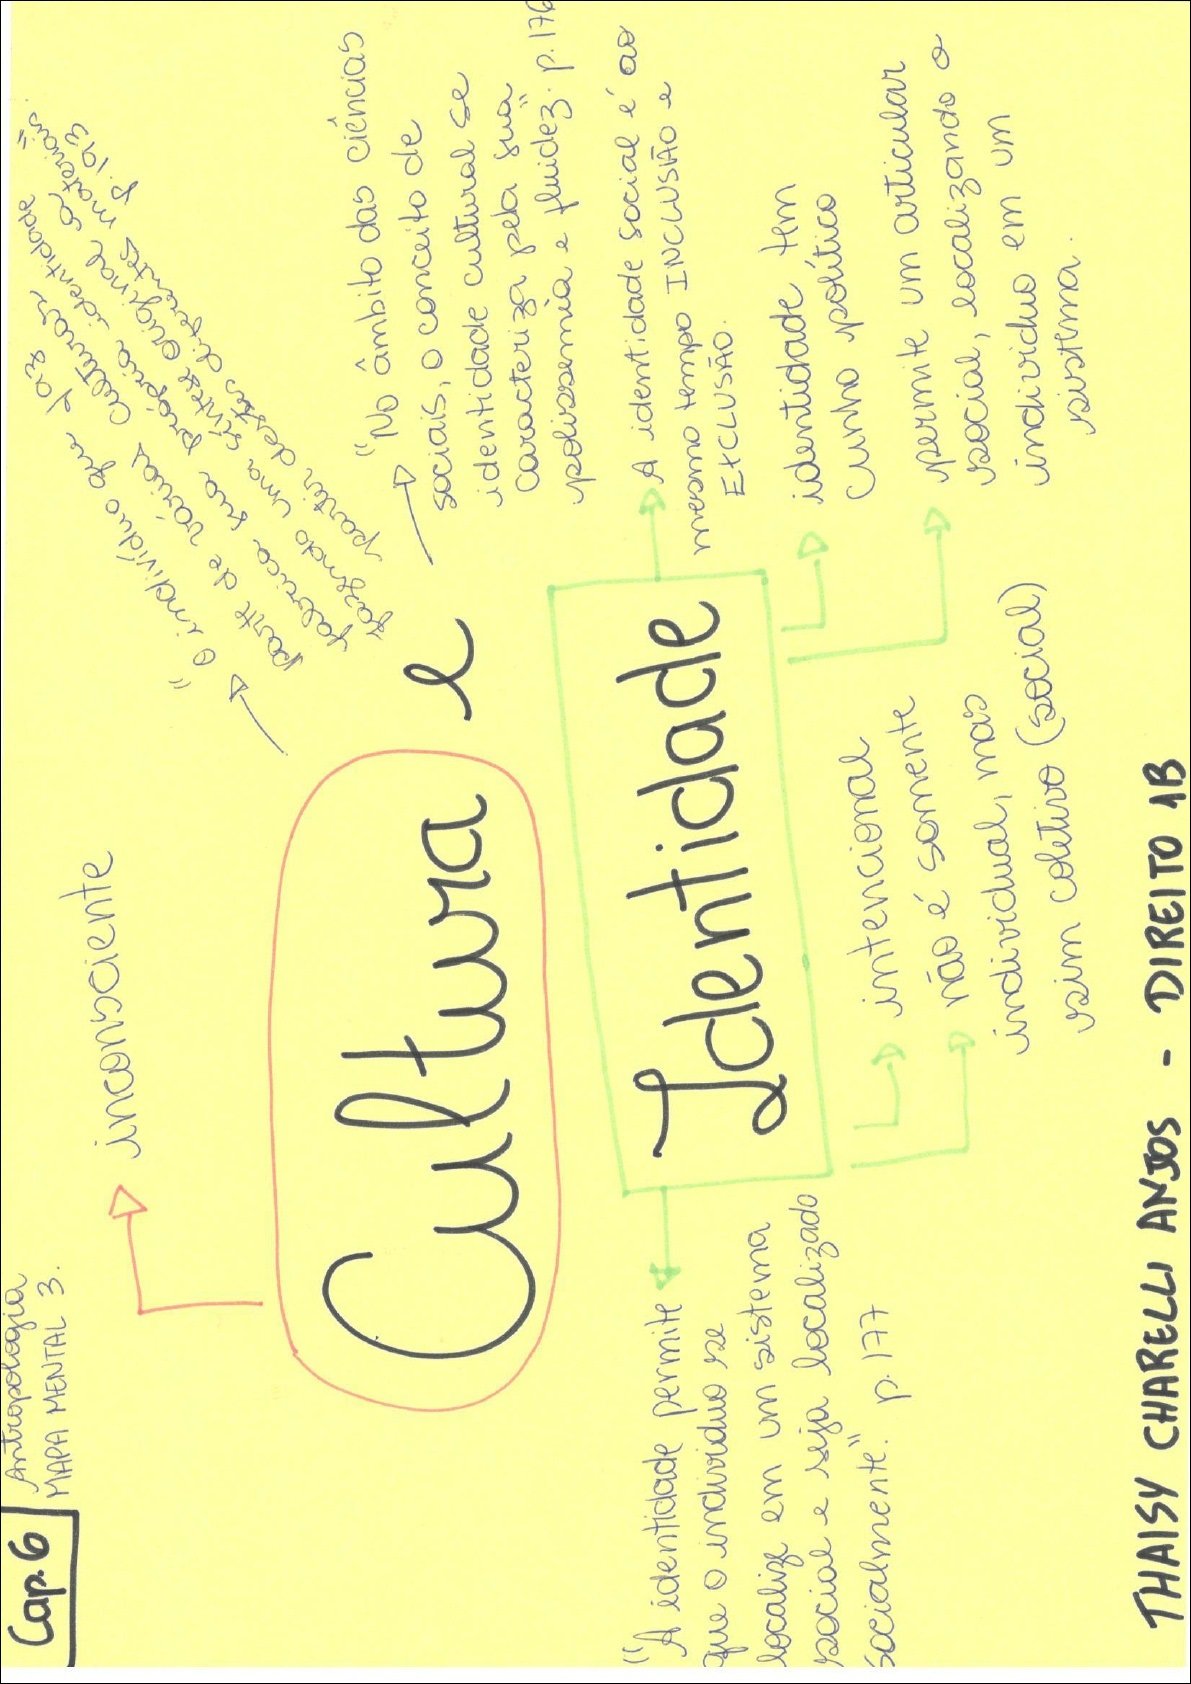 Cap. 6
Antropologia
MAPA MENTAL 3.
inconsciente
"O indivíduo que faz
parte de várias culturas,
fabrica sua própria identidade
fazendo uma síntese original a
partir destes diferentes materiais".
p. 193
Cultura e
"No âmbito das ciências
sociais, o conceito de
identidade cultural se
caracteriza pela sua
polissemia e fluidez". p. 176
Identidade
A identidade social é ao
mesmo tempo INCLUSÃO e
EXCLUSÃO.
identidade tem
cunho político
permite um articular
social, localizando o
individuo em um
sistema.
"A identidade permite
que o individuo se
localize em um sistema
social e seja localizado
socialmente". p. 177
intencional
não é somente
individual, mas
sim coletivo (social)
THAISY CHARELLI ANJOS - DIREITO 1B